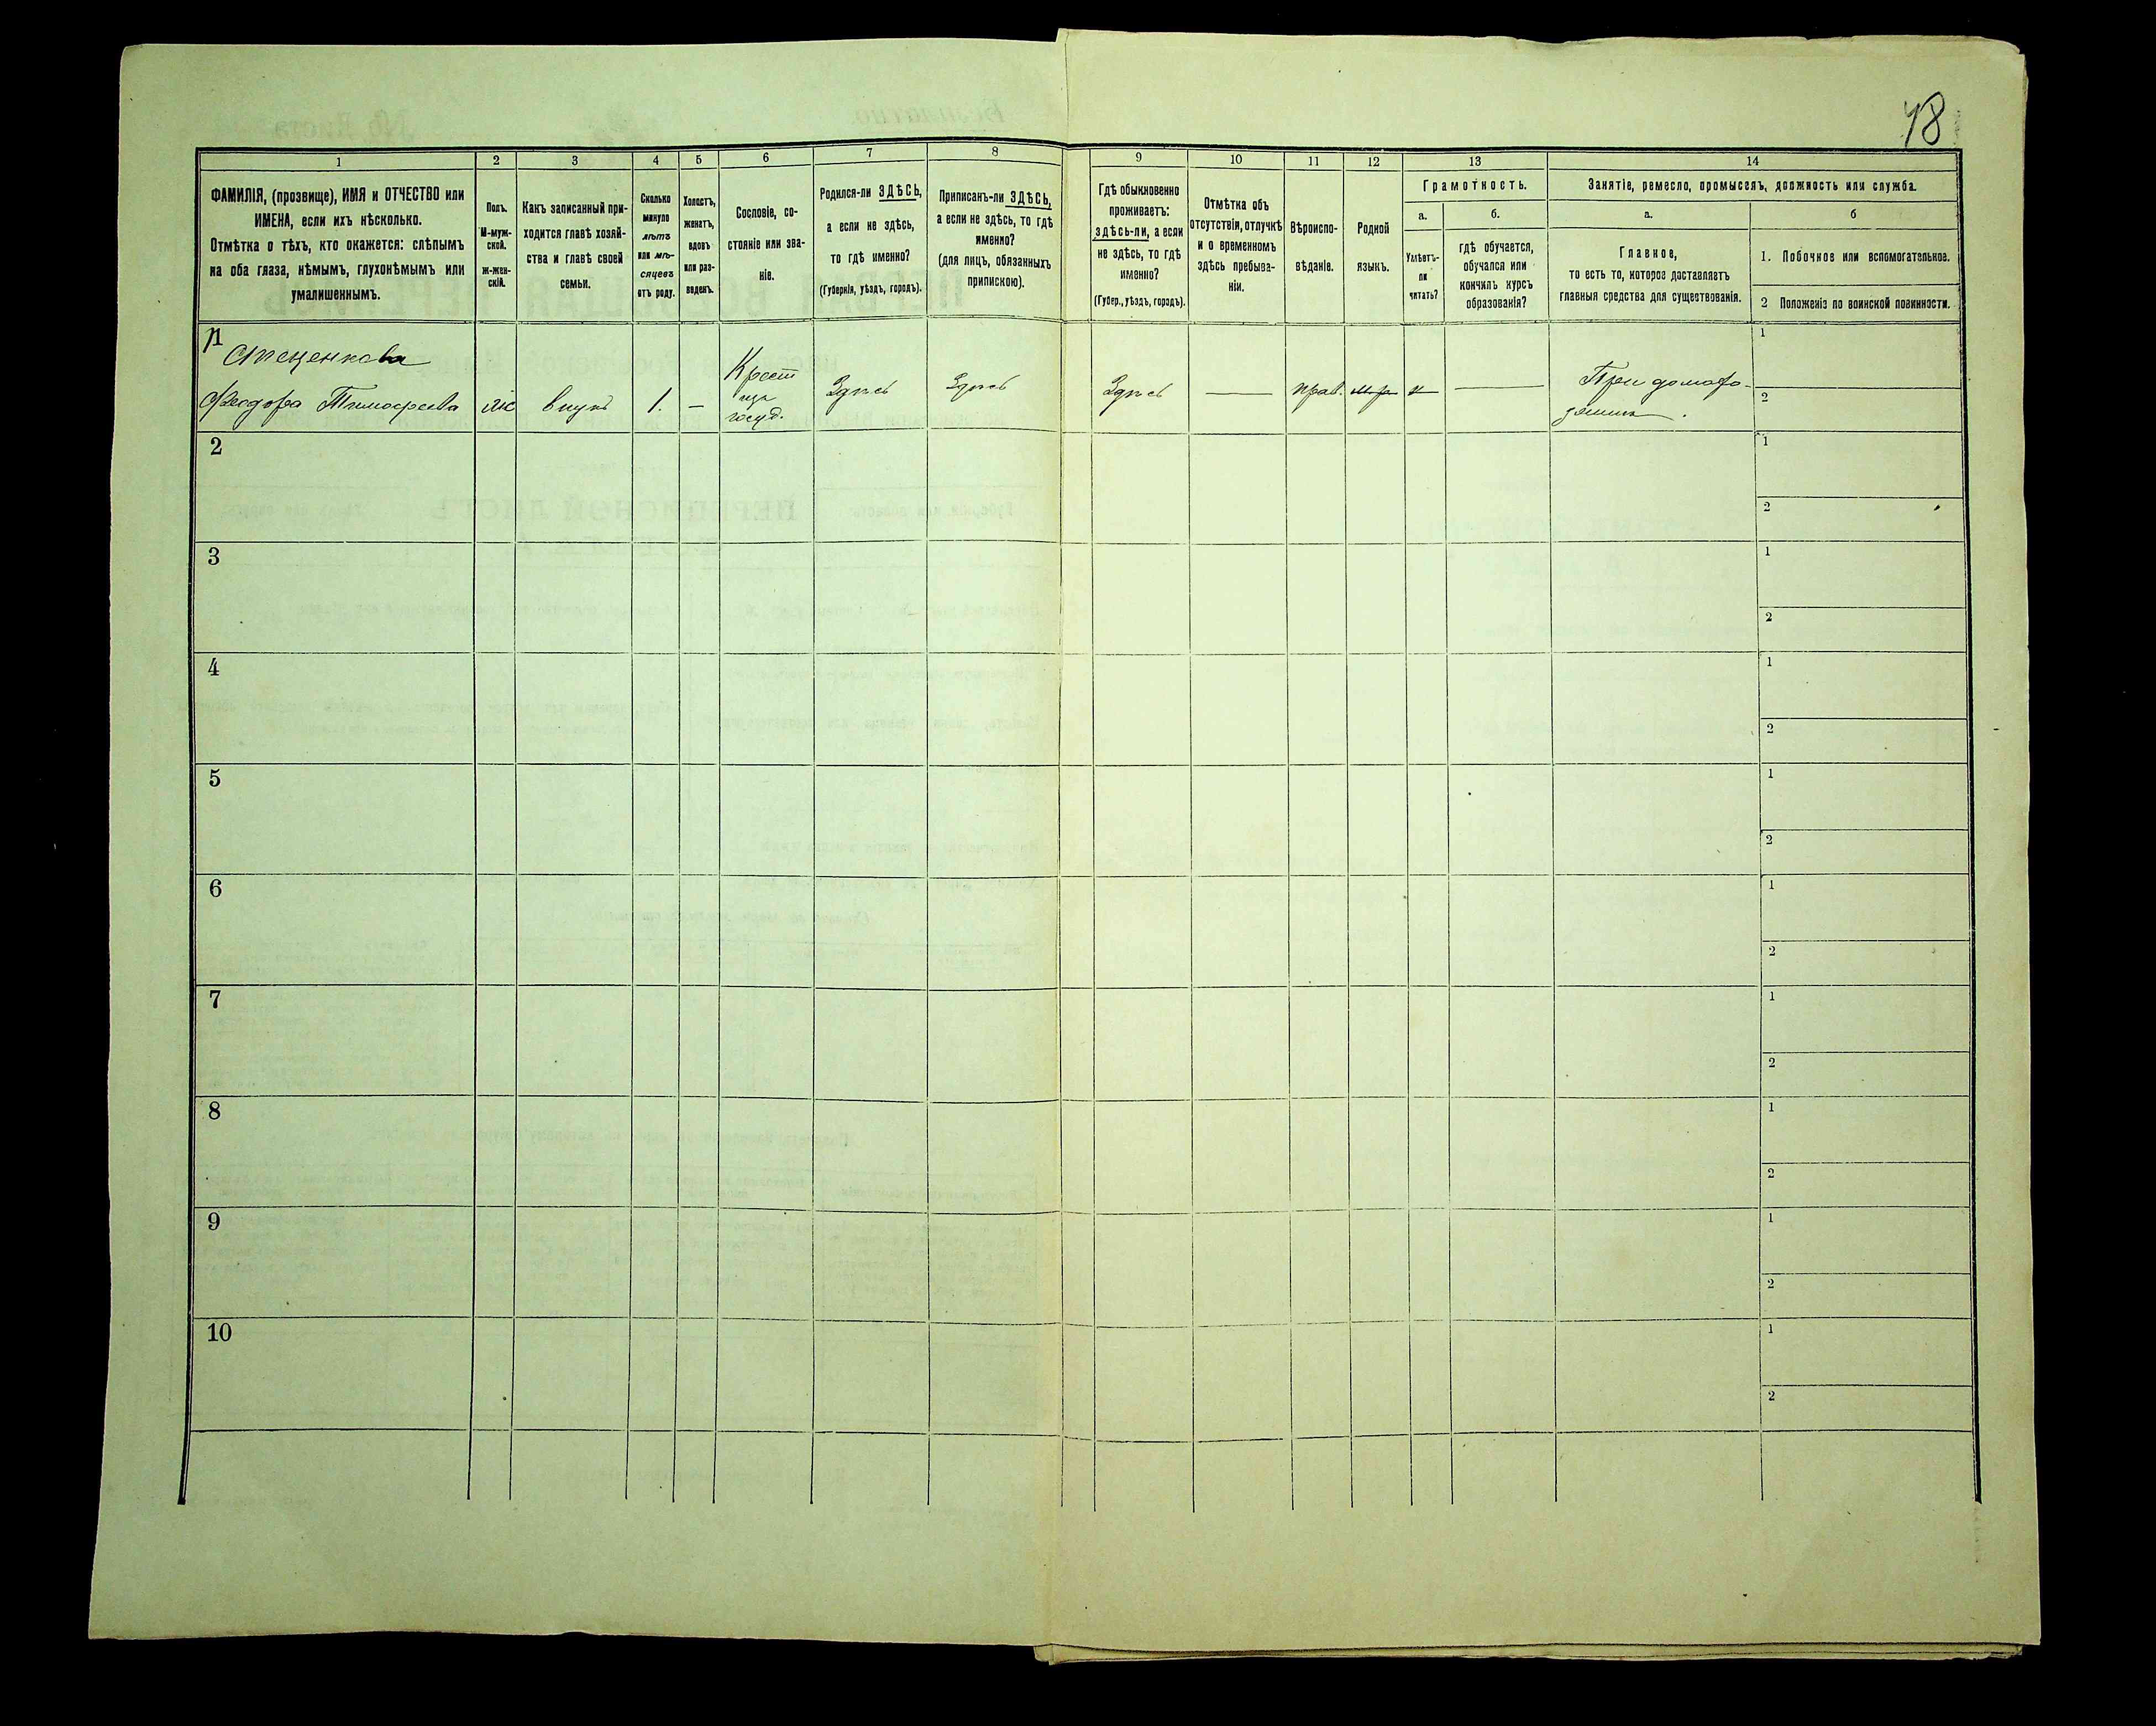 18
1
2
3
4
5
6
7
8
9
10
11
12
13
14
ФАМИЛІЯ, (прозвище), ИМЯ и ОТЧЕСТВО или
ИМЕНА, если ихъ нѣсколько.
Отмѣтка о тѣхъ, кто окажется: слѣпымъ
на оба глаза, нѣмымъ, глухонѣмымъ или
умалишеннымъ.
Полъ.
М-муж-
ской.
ж-жен-
скій.
Какъ записанный при-
ходится главѣ хозяй-
ства и главѣ своей
семьи.
Сколько
минуло
лѣтъ
или мѣ-
сяцевъ
отъ роду.
Холостъ,
женатъ,
вдовъ
или раз-
веденъ.
Сословіе, со-
стояніе или зва-
ніе.
Родился-ли ЗДѢСЬ,
а если не здѣсь,
то гдѣ именно?
(Губернія, уѣздъ, городъ).
Приписанъ-ли ЗДѢСЬ,
а если не здѣсь, то гдѣ
именно?
(для лицъ, обязанныхъ
припискою).
Гдѣ обыкновенно
проживаетъ:
здѣсь-ли, а если
не здѣсь, то гдѣ
именно?
(Губер., уѣздъ, городъ).
Отмѣтка объ
отсутствіи, отлучкѣ
и о временномъ
здѣсь пребыва-
ніи.
Вѣроиспо-
вѣданіе.
Родной
языкъ.
Грамотность.
а.
Умѣетъ-
ли
читать?
б.
гдѣ обучается,
обучался или
кончилъ курсъ
образованія?
Занятіе, ремесло, промыселъ, должность или служба.
а.
Главное,
то есть то, которое доставляетъ
главныя средства для существованія.
б
1. Побочное или вспомогательное.
2 Положеніе по воинской повинности.
1
Феодора Тимофеева
внукъ
1.
—
Крест
госуд.
Здѣсь
Здѣсь
Здѣсь
—
прав.
м-р
н
—
При
1
2
2
1
2
3
1
2
4
1
2
5
1
2
6
1
2
7
1
2
8
1
2
9
1
2
10
1
2